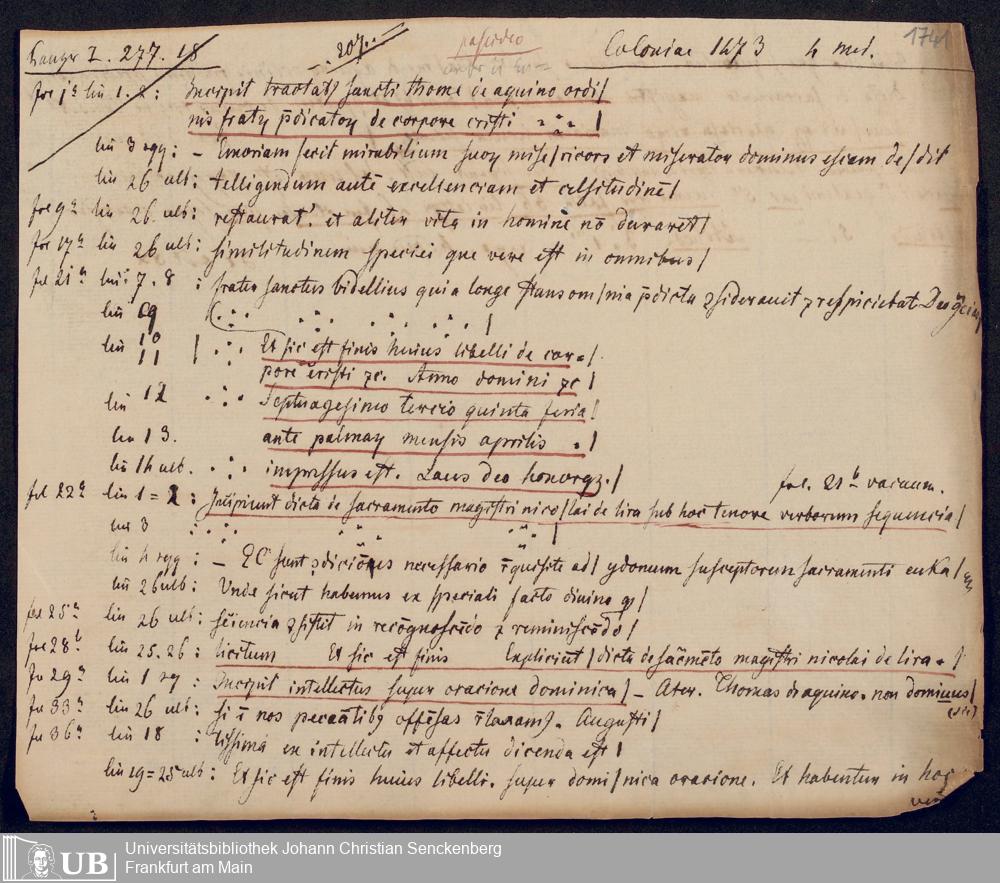 Panzer I. 277. 18 207. Coloniae 1473 4 mai. 1741
fol 1a lin 1. 2: Incipit tractatꝫ sancti thome de aquino ordi/
nis fratꝝ p̄dicatoꝝ de corpore cristi /
lin 3 sqq: – Emoriam fecit mirabilium suoꝝ mise/ricors et miserator dominus escam de/dit
lin 26 ulb: telligendum autē excellenciam et celsitudinē/
fol 9a lin 26. ulb: restaurat’. et aliter vita in homine nō duraret/
fol 17a lin 26 ulb: similitudinem speciei que vere est in omnibus/
fol 21a lin 7. 8 : frater sanctus videllius quia longe stans om/nia p̄dicta ꝯsiderauit ⁊ respiciebat Deo
lin 9 /
lin 10 / Et sic est finis huius libelli de cor=/
11 pore cristi ⁊c. Anno domini ⁊c /
lin 12 septuagesimo tercio quinta feria/
lin 13. ante palmaꝝ mensis aprilis . /
lin 14 ulb. impressus est. Laus deo honorqꝫ. / fol. 21b vacuum.
fol 22a lin 1=2: Incipiunt dicta de sacramento magistri nico/lai de lira sub hoc tenore verborum sequencia/
lin 3 /
lin 4 sqq : – EC sunt ꝯdiciones necessario r̄quisite ad/ ydoneum susceptorem sacramenti euka/
lin 26 ulb: Unde sicut habemus ex speciali facto diuino /
fol 25a lin 26 ulb: sciencia ꝯsistit in recōgnoscēdo ⁊ reminiscēdo/
fol 28b lin 25. 26 : licitum Et sic est finis Expliciunt / dicta de sacmēto magistri nicolai de lira . /
fo 29a lin 1 sq : Incipit intellectus super oracione dominica/ – Ater. Thomas de aquino. non dominus/
(sic)
fo 33a lin 26 ulb: si ī nos peccātibꝫ offēsas r̄laxamꝫ. Augusti/
fo 36a lin 18 : tissima ex intellectu et affectu dicenda est/
lin 19=25 ulb: Et sic est finis huius libelli. super domi/nica oracione. Et habentur in hoc
UB Universitätsbibliothek Johann Christian Senckenberg
Frankfurt am Main